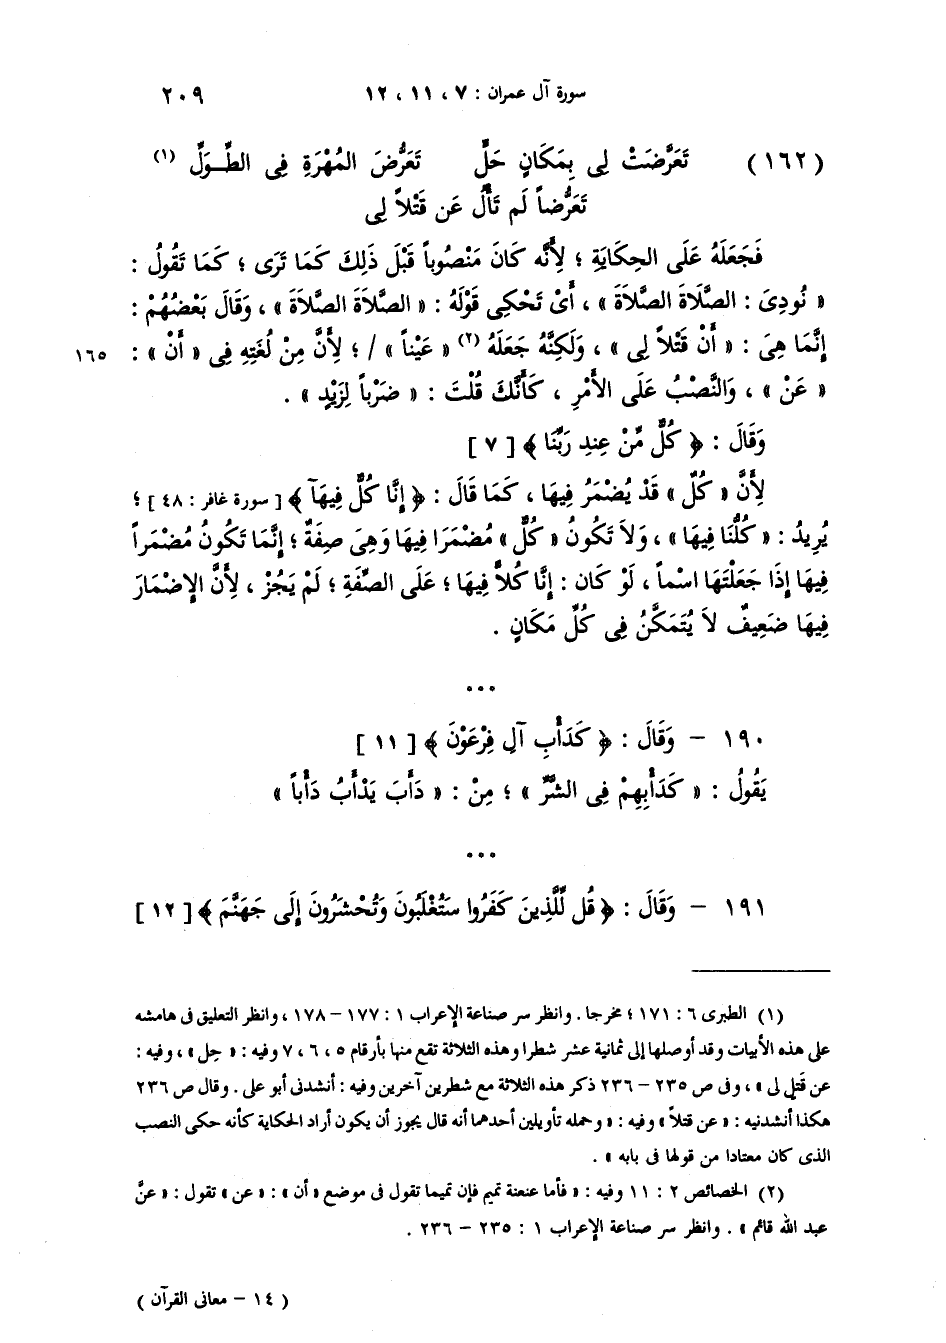 سورة آل عمران : ٧ ، ١١ ، ١٢ ٢٠٩
(١٦٢) تَعَرَّضَتْ لِى بِمَكَانٍ حَلٍّ تَعَرُّضَ المُهْرَةِ فِى الطِّـوَلِّ (١)
تَعَرُّضاً لَم تَأْلُ عَن قَتْلاً لِى
فَجَعَلَهُ عَلَى الحِكَايَةِ ؛ لِأَنَّه كَانَ مَنْصُوباً قَبْلَ ذَلِكَ كَمَا تَرَى ؛ كَمَا تَقُولُ :
« نُودِىَ : الصَّلَاةَ الصَّلَاةَ » ، أَىْ تَحْكِى قَوْلَهُ : « الصَّلاَةَ الصَّلاَةَ » ، وَقَالَ بَعْضُهُمْ :
إِنَّمَا هِىَ : « أَنْ قَتْلاً لِى » ، وَلَكِنَّهُ جَعَلَهُ (٢) « عَيْناً » / ؛ لِأَنَّ مِنْ لُغَتِهِ فِى « أَنْ » : ١٦٥
« عَنْ » ، وَالنَّصْبُ عَلَى الأَمْرِ ، كَأَنَّكَ قُلْتَ : « ضَرْباً لِزَيْدٍ » .
وَقَالَ : ﴿ كُلٌّ مِّنْ عِندِ رَبِّنَا ﴾ [ ٧ ]
لِأَنَّ « كُلّ » قَدْ يُضْمَرُ فِيهَا ، كَمَا قَالَ : ﴿ إِنَّا كُلٌّ فِيهَآ ﴾ [ سورة غافر : ٤٨ ] ؛
يُرِيدُ : « كُلُّنَا فِيهَا » ، وَلاَ تَكُونُ « كُلّ » مُضْمَرَا فِيهَا وَهِىَ صِفَةٌ ؛ إِنَّمَا تَكُونُ مُضْمَراً
فِيهَا إِذَا جَعَلْتَهَا اسْماً ، لَوْ كَان : إِنَّا كُلاًّ فِيهَا ؛ عَلَى الصِّفَةِ ؛ لَمْ يَجُزْ ، لِأَنَّ الإِضْمَارَ
فِيهَا ضَعِيفٌ لاَ يُتَمَكَّنُ فِى كُلِّ مَكَانٍ .
...
١٩٠ – وَقَالَ : ﴿ كَدَأْبِ آلِ فِرْعَوْنَ ﴾ [ ١١ ]
يَقُولُ : « كَدَأْبِهِمْ فِى الشَّرِّ » ؛ مِنْ : « دَأَبَ يَدْأَبُ دَأْباً »
...
١٩١ – وَقَالَ : ﴿ قُل لِّلَّذِينَ كَفَرُوا سَتُغْلَبُونَ وَتُحْشَرُونَ إِلَى جَهَنَّمَ ﴾ [ ١٢ ]
(١) الطبرى ٦ : ١٧١ ؛ مخرجا . وانظر سر صناعة الإعراب ١ : ١٧٧ – ١٧٨ ، وانظر التعليق فى هامشه
على هذه الأبيات وقد أوصلها إلى ثمانية عشر شطرا وهذه الثلاثة تقع منها بأرقام ٥ ، ٦ ، ٧ وفيه : « حِل » ، وفيه :
عن قَتلٍ لى » ، وفى ص ٢٣٥ – ٢٣٦ ذكر هذه الثلاثة مع شطرين آخرين وفيه : أنشدنى أبو على . وقال ص ٢٣٦
هكذا أنشدنيه : « عن قتلاً » وفيه : « وحمله تأويلين أحدهما أنه قال يجوز أن يكون أراد الحكاية كأنه حكى النصب
الذى كان معتادا من قولها فى بابه » .
(٢) الخصائص ٢ : ١١ وفيه : « فأما عنعنة تميم فإن تميما تقول فى موضع « أن » : « عن » تقول : « عنَّ
عبد الله قائم » . وانظر سر صناعة الإعراب ١ : ٢٣٥ – ٢٣٦ .
( ١٤ – معانى القرآن )